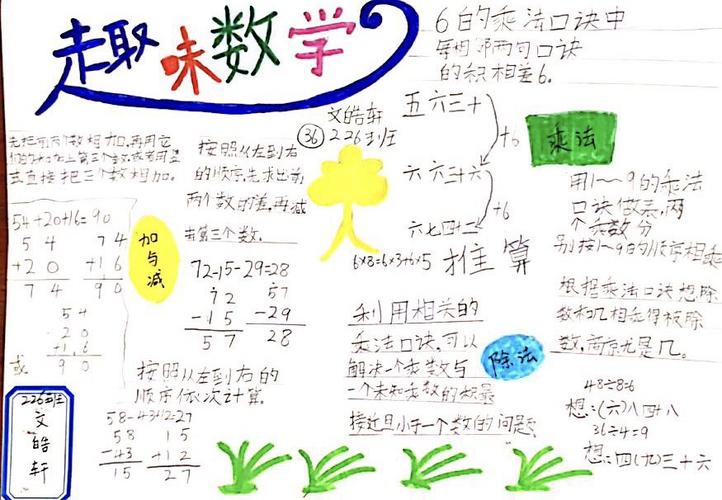 趣味数学
6的乘法口诀中
每相邻两句口诀
的积相差6。
文皓轩
㊱ 226班
五六三十
+6
六六三十六
+6
六七四十二
6×8=6×3+6×5
推算
先把前两个数相加,再用它
直接把三个数相加。
54+20+16=90
5 4
+2 0
7 4
7 4
+1 6
9 0
或
5 4
2 0
+1 6
9 0
加与减
按照从左到右
的顺序先求出前
两个数的差,再减
去第三个数。
72-15-29=28
7 2
-1 5
5 7
57
-29
28
按照从左到右的
顺序依次计算
58-43+12=27
58
-43
15
1 5
+1 2
2 7
226班
文皓轩
利用相关的
乘法口诀,可以
解决一个乘数与
一个未知乘数的积最
接近且小于一个数的问题
乘法
用1~9的乘法
口诀做表,两
个乘数分
别按1~9的顺序相乘
除法
根据乘法口诀想除
数和几相乘得被除
数,商就是几。
48÷8=6
想:(六)八四十八
36÷4=9
想:四(九)三十六